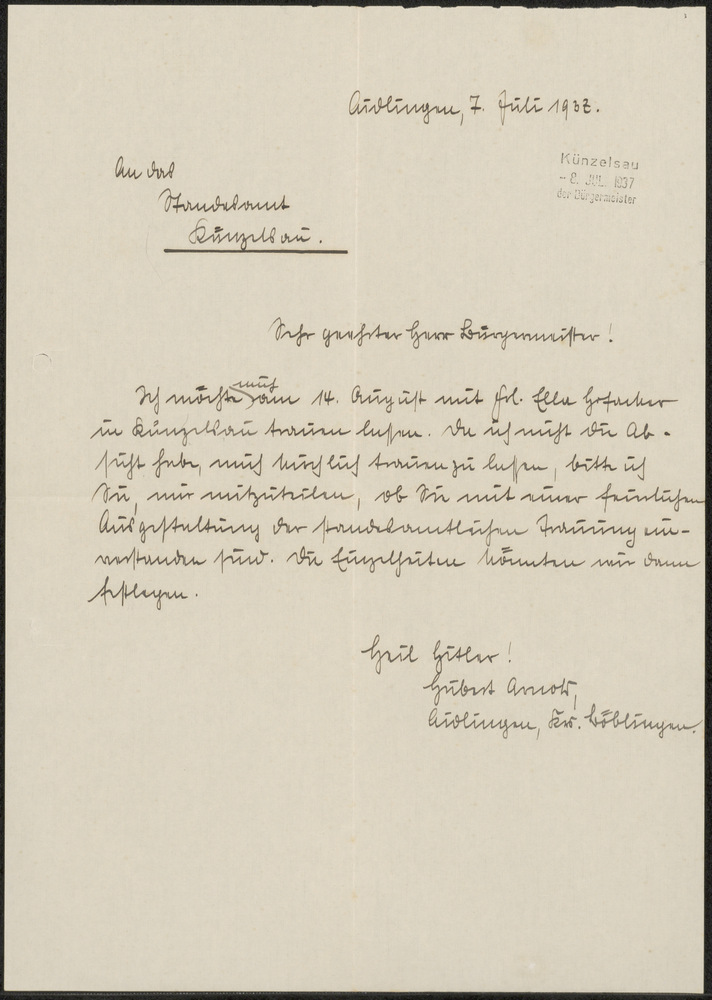 Aidlingen, 7. Juli 1937.
Künzelsau
- 8. JUL. 1937
der Bürgermeister
An das
Standesamt
Künzelsau.
Sehr geehrter Herr Bürgermeister!
Ich möchte mich am 14. August mit Frl. Ella Hofacker
in Künzelsau trauen lassen. Da ich nicht die Ab-
sicht habe, mich kirchlich trauen zu lassen, bitte ich
Sie, mir mitzuteilen, ob Sie mit einer feierlichen
Ausgestaltung der standesamtlichen Trauung ein-
verstanden sind. Die Einzelheiten könnten wir dann
festlegen.
Heil Hitler!
Hubert Arnold,
Aidlingen, Krs. Böblingen.